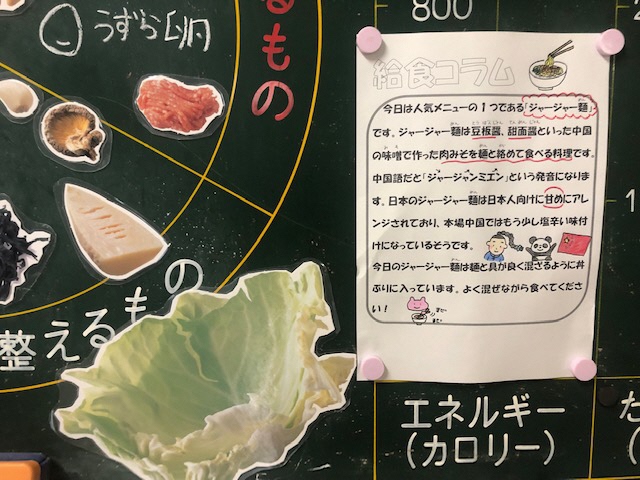 うずら卵
るもの
整えるもの
800
給食コラム
今日は人気メニューの1つである「ジャージャー麺」
です。ジャージャー麺は豆板醤、甜面醤といった中国
の味噌で作った肉みそを麺と絡めて食べる料理です。
中国語だと「ジャージャンミエン」という発音になりま
す。日本のジャージャー麺は日本人向けに甘めにアレ
ンジされており、本場中国ではもう少し塩辛い味付
けになっているそうです。
今日のジャージャー麺は麺と具が良く混ざるように丼
ぶりに入っています。よく混ぜながら食べてくださ
い!
エネルギー
(カロリー)
た